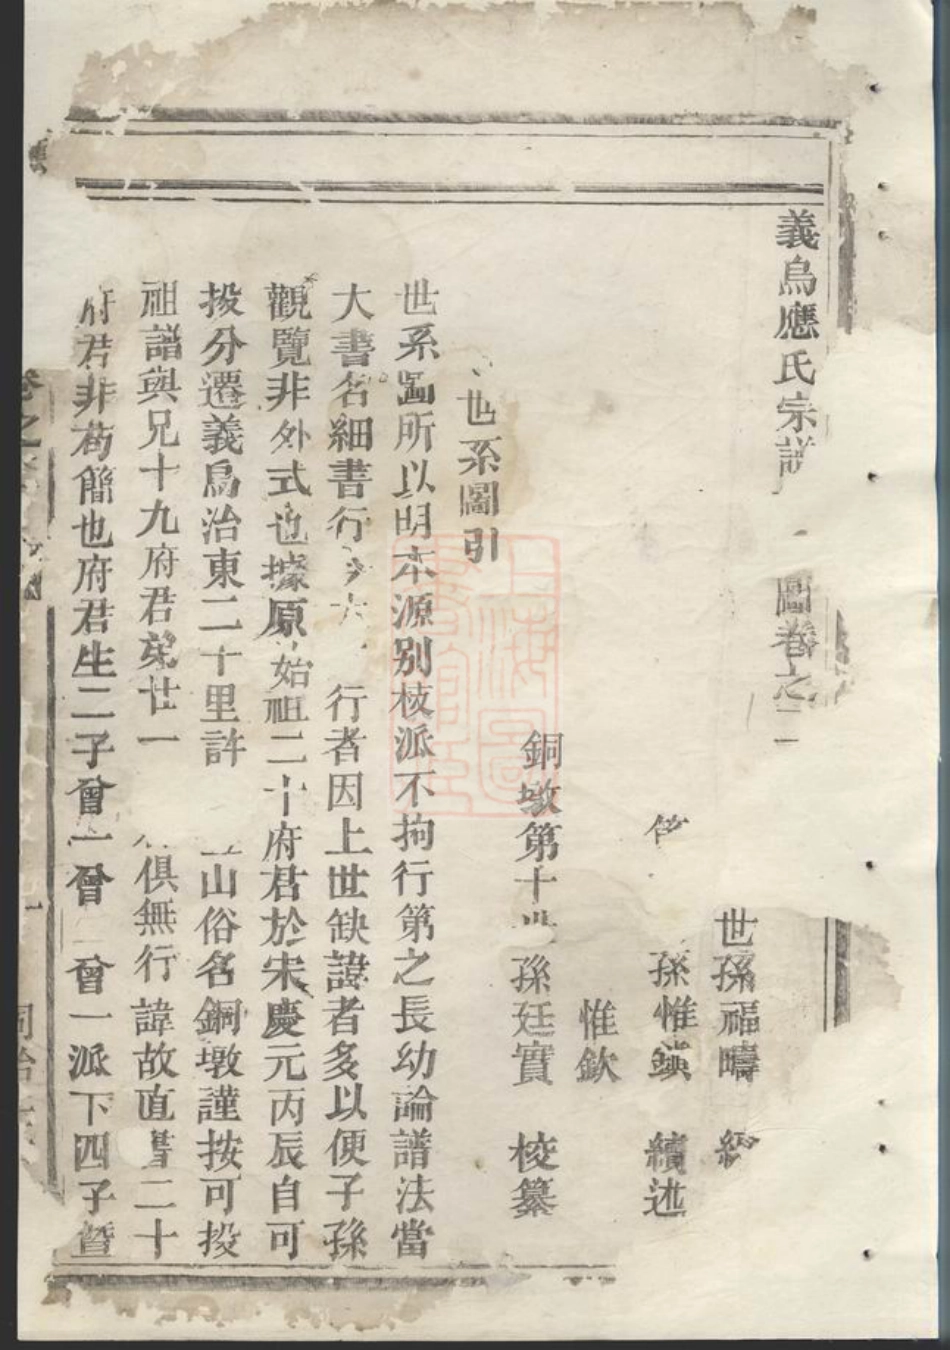 義烏應氏宗譜 圖卷之二
世孫福疇
孫惟鐄 續述
惟欽
銅墩第十世孫廷實 校纂
世系圖引
世系圖所以明本源别枝派不拘行第之長幼論譜法當
大書名細書行 行者因上世缺諱者多以便子孫
觀覽非外式也據原始祖二十府君於宋慶元丙辰自可
投分遷義烏治東二十里許 山俗名銅墩謹按可投
祖譜與兄十九府君苐廿一 俱無行諱故直書二十
府君非苟簡也府君生二子曾一曾 曾一派下四子暨
卷之
上海圖書館藏